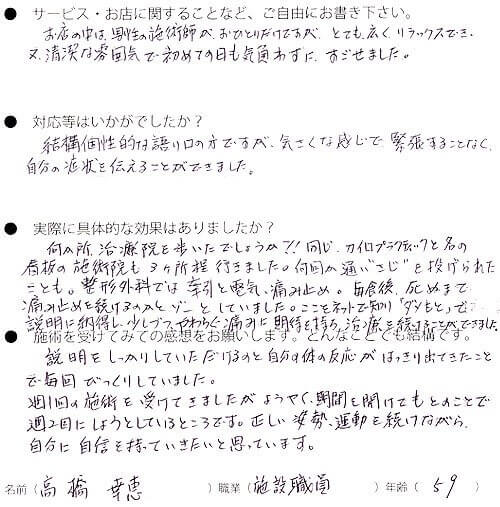 ● サービス・お店に関することなど、ご自由にお書き下さい。
お店の中は、男性の施術師が、おひとりだけですが、とても広くリラックスでき、
又、清潔な雰囲気で初めての日も気負わずに、すごせました。
● 対応等はいかがでしたか？
結構個性的な語り口の方ですが、気さくな感じで緊張することなく、
自分の症状を伝えることができました。
● 実際に具体的な効果はありましたか？
何カ所、治療院を歩いたでしょうか?! 同じ、カイロプラクティックと名の
看板の施術院も3ヶ所程行きました。何回か通い"さじ"を投げられた
ことも。整形外科では牽引と電気、痛み止め。毎食後、死ぬまで
痛み止めを続けるのかとゾーとしていました。ここをネットで知り「ダメもと」で
説明に納得し、少しづつやわらぐ痛みに期待を持ち、治療を続けることができました。
● 施術を受けてみての感想をお願いします。どんなことでも結構です。
説明をしっかりしていただけるのと自分の体の反応がはっきり出てきたこと
で毎回びっくりしていました。
週1回の施術を受けてきましたがようやく、期間を開けてもとのことで
週2回にしようとしているところです。正しい姿勢、運動を続けながら、
自分に自信を持っていきたいと思っています。
名前（高橋 幸恵 ）職業（施設職員 ）年齢（ 59 ）